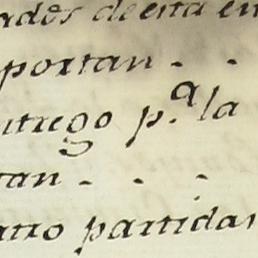 ados de esta en
portan - -
ntrego p.ª la
tan - - -
atro partidas